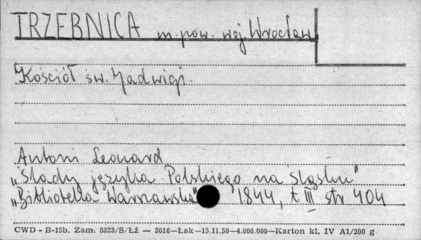 TRZEBNICA m. pow. woj. Wrocław
Kościół św. Jadwigi.
Antoni Leonard
"Ślady języka Polskiego na Śląsku"
"Biblioteka Warszawska" 1844, t III str 404
CWD - B-15b. Zam. 5323/S/Łź — 3016—Łak—15.11.50—4.000.000—Karton kl. IV A1/200 g